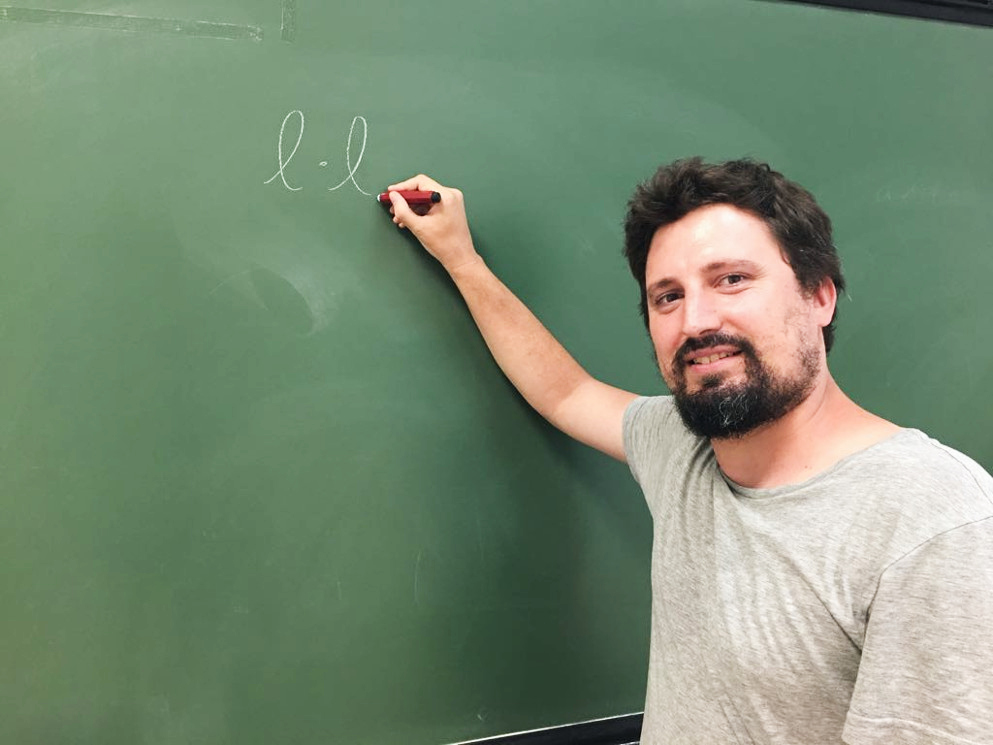 l·l